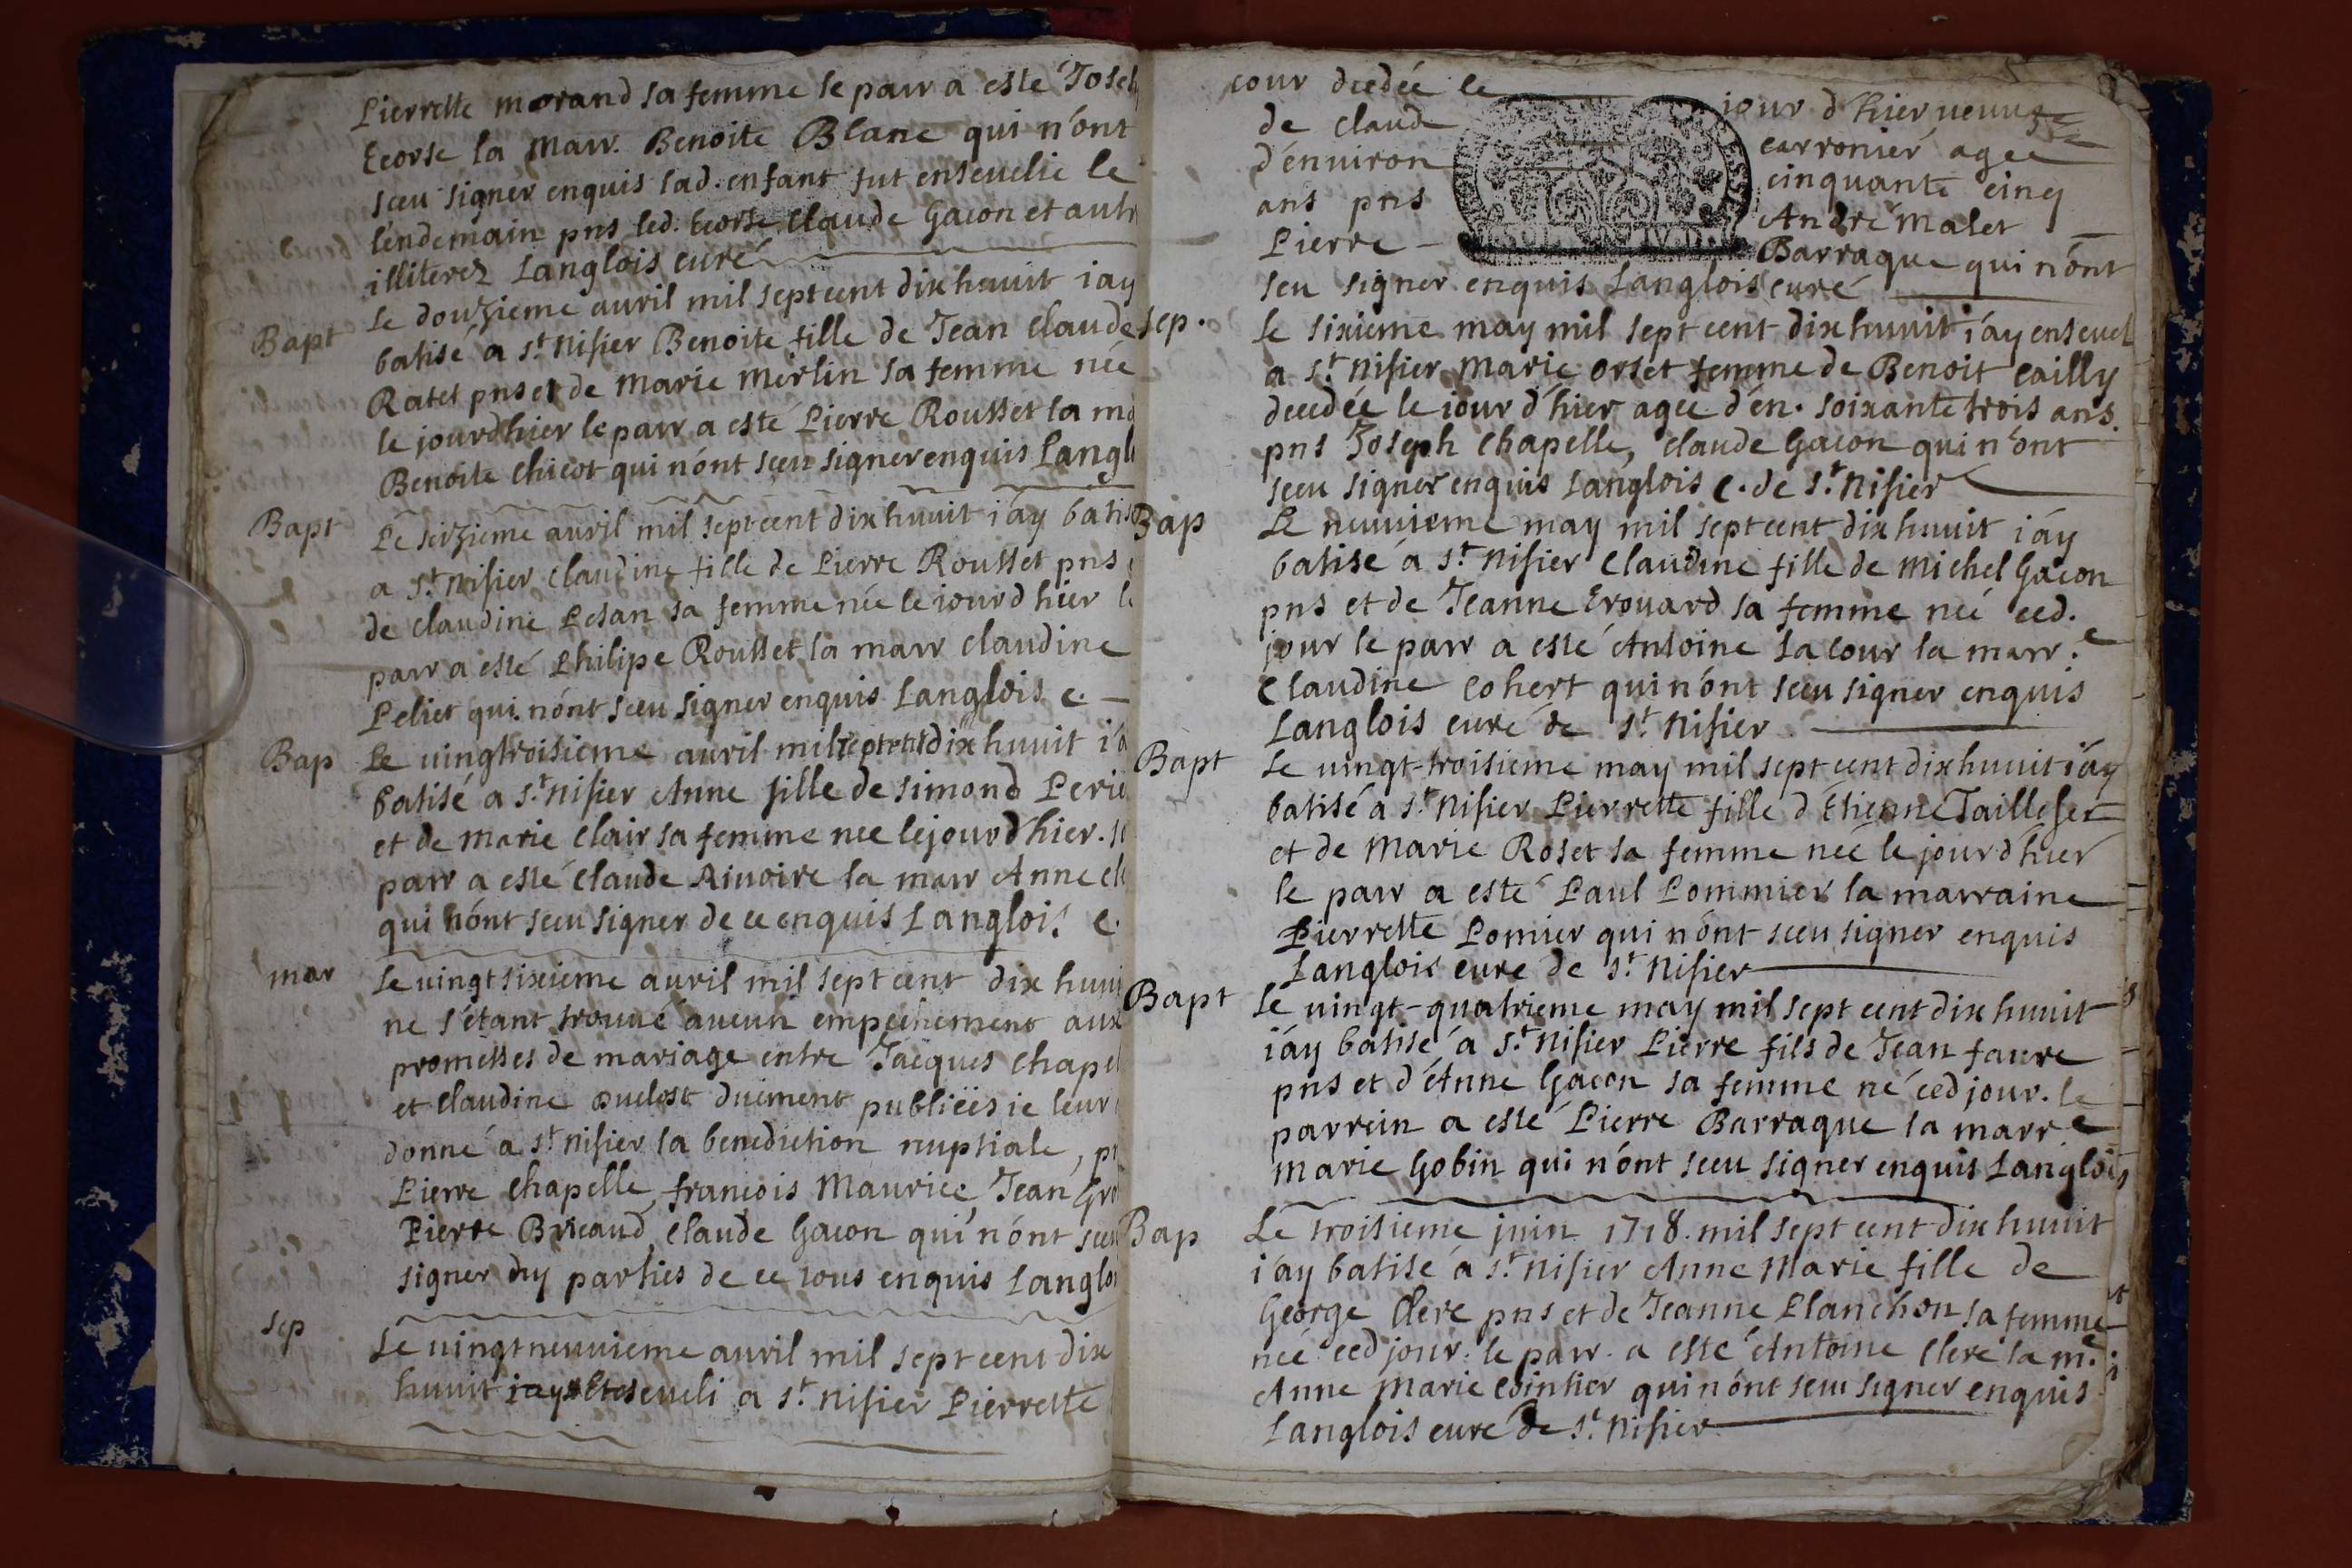 Pierrette morand sa femme le parr a esté Jose
Ecorse la Marr. Benoite Blanc qui n'ónt
sceu signer enquis lad. enfant fut ensevelie le
lendemain pns led. Ecorse, Claude Gacon et autr
illiterez Langlois curé
Bapt Le douzieme auril mil sept cent dix huuit i ay
batisé a st. Nisier Benoite fille de Jean Claude
Ratet pns et de Marie Merlin sa femme née
le jourdhier le parr a esté Pierre Rousset la ma
Benoite Chicot qui n'ónt sceu signer enquis Langl
Bapt Le seizieme auril mil sept cent dix huuit i áy batis
a st. Nisier Claudine fille de Pierre Rousset pns
de Claudine Pesan sa femme née le iourd hier l
parr a esté Philipe Rousset la marr Claudine
Peliet qui n'ónt sceu signer enquis Langlois c.
Bap Le uingtroisieme auril mil sept cent dix huuit i'a
batisé a st. Nisier Anne fille de simond Perie
et de Marie Clair sa femme nee le jourd'hier.
parr a esté Claude Riuoire la marr Anne cl
qui n'ónt sceu signer de ce enquis Langlois c.
mar Le uingtsixieme auril mil sept cent dix huui
ne s'étant trouué aucun empechement aux
promesses de mariage entre Jacques Chapel
et Claudine Duclost duëment publiëes ie leur
donné a st. Nisier la benediction nuptiale, p
Pierre Chapelle, francois Maurice, Jean Gro
Pierre Bricaud, Claude Gacon qui n'ónt sceu
signer ny parties de ce tous enquis Langlo
sep Le uingtneuuieme auril mil sept cent dix
huuit iay enseueli a st. Nisier Pierrette
cour decedée le iour d'hier ueuue
de Claude carronier agee
d'énuiron cinquante cinq
ans pns André Malet
Pierre Barraque qui n'ónt
seu signer enquis Langlois curé
sep. Le sixieme may mil sept cent dix huuit i'áy enseuel
a st. Nisier Marie Orset femme de Benoit Cailly
decedée le iour d'hier agée d'én. soixante trois ans.
pns Joseph Chapelle, Claude Gacon qui n'ónt
sceu signer enquis Langlois C. de st. Nisier
Bap Le neuuieme may mil sept cent dix huuit i'áy
batisé a st. Nisier Claudine fille de Michel Gacon
pns et de Jeanne Erouard sa femme neé ced.
jour le parr a esté Antoine La cour la marr.e
Claudine Cohert qui n'ónt sceu signer enquis
Langlois curé de st. Nisier
Bapt Le uingt-troisieme may mil sept cent dix huuit i'áy
batisé a st. Nisier Pierrette fille d'Étienne Taillefer
et de Marie Roset sa femme neé le jour d'hier
le parr a esté Paul Pommier la marraine
Pierrette Pomier qui n'ónt sceu signer enquis
Langlois curé de st. Nisier
Bapt Le uingt-quatrieme may mil sept cent dix huuit
i'áy batisé a st. Nisier Pierre fils de Jean faure
pns et d'Anne Gacon sa femme né ced jour. le
parrein a esté Pierre Barraque la marr.e
Marie Gobin qui n'ónt sceu signer enquis Langlois
Bap Le troisieme juin 1718. mil sept cent dix huuit
i'áy batisé a st. Nisier Anne Marie fille de
George Clerc pns et de Jeanne Planchon sa femme
neé ced jour. le parr. a esté Antoine Clerc la m.e
Anne Marie Cointier qui n'ónt sceu signer enquis
Langlois curé de st. Nisier